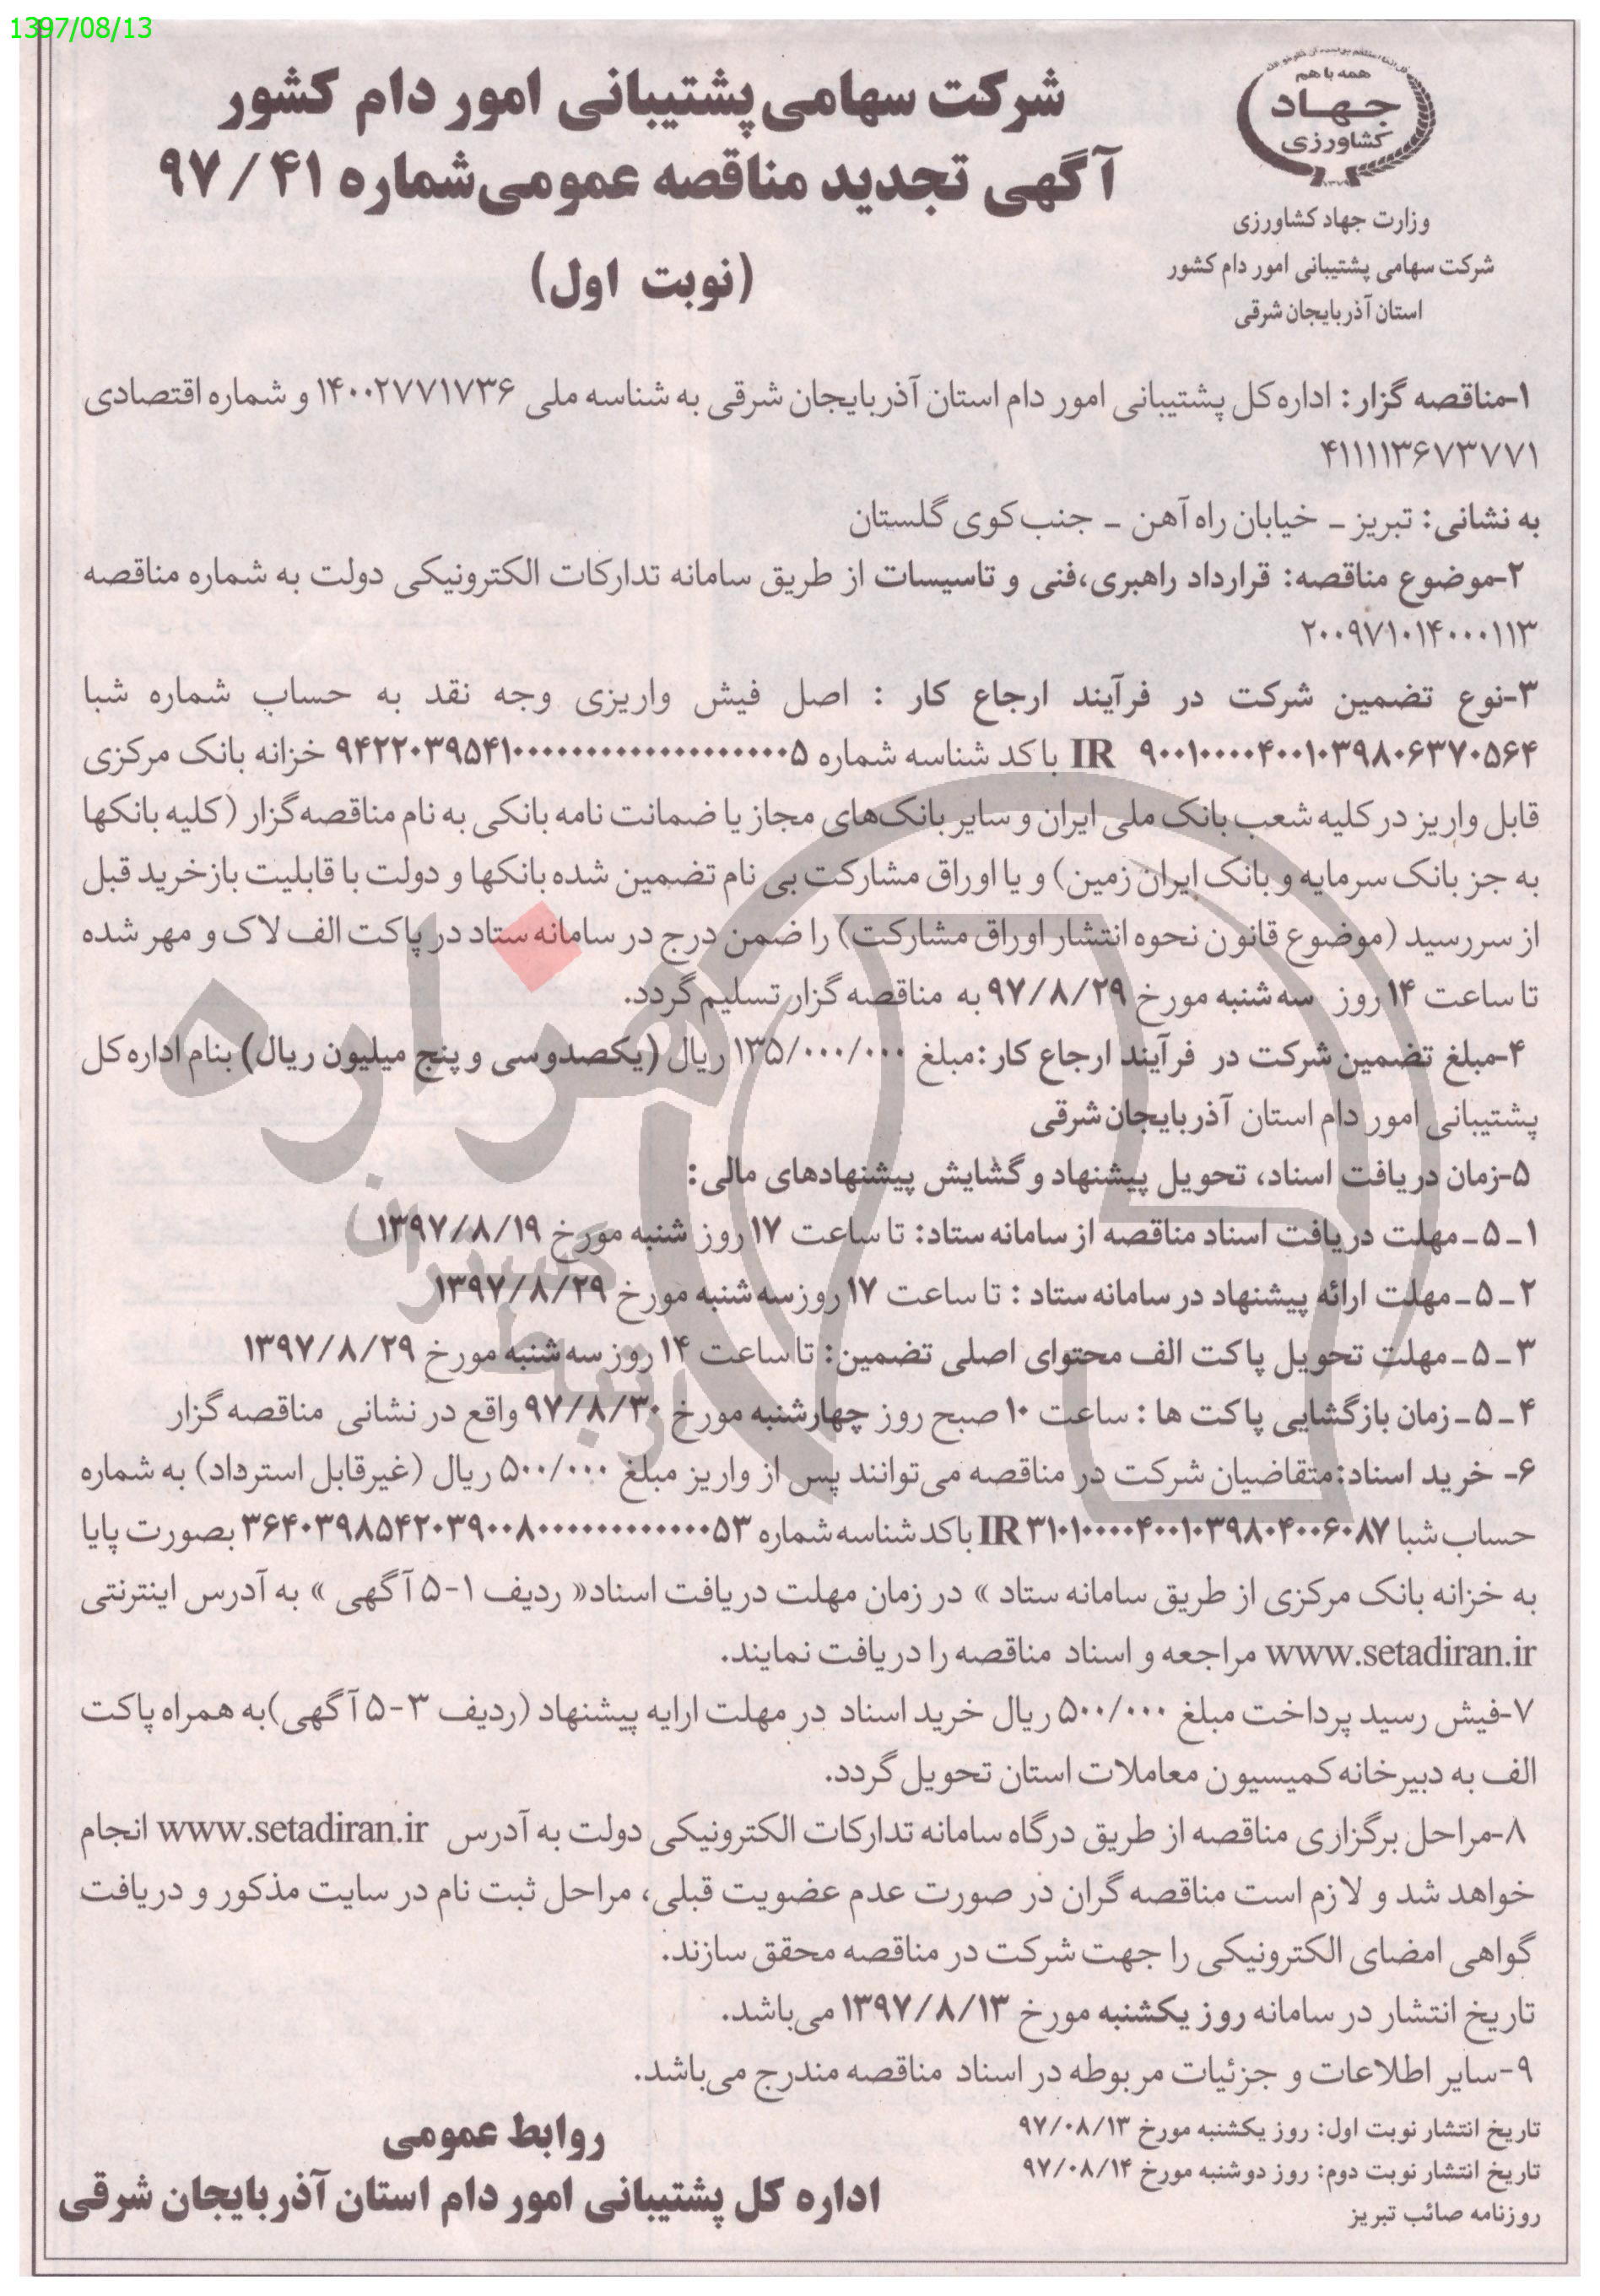 1397/08/13
همه با هم
جهاد
کشاورزی
وزارت جهاد کشاورزی
شرکت سهامی پشتیبانی امور دام کشور
استان آذربایجان شرقی
شرکت سهامی پشتیبانی امور دام کشور
آگهی تجدید مناقصه عمومی شماره ۹۷/۴۱
(نوبت اول)
۱-مناقصه گزار: اداره کل پشتیبانی امور دام استان آذربایجان شرقی به شناسه ملی ۱۴۰۰۲۷۷۱۷۳۶ و شماره اقتصادی
۴۱۱۱۱۳۶۷۳۷۷۱
به نشانی: تبریز - خیابان راه آهن - جنب کوی گلستان
۲-موضوع مناقصه: قرارداد راهبری،فنی و تاسیسات از طریق سامانه تدارکات الکترونیکی دولت به شماره مناقصه
۲۰۰۹۷۱۰۱۴۰۰۰۱۱۳
۳-نوع تضمین شرکت در فرآیند ارجاع کار : اصل فیش واریزی وجه نقد به حساب شماره شبا
IR ۹۰۰۱۰۰۰۰۴۰۰۱۰۳۹۸۰۶۳۷۰۵۶۴ با کد شناسه شماره ۹۴۲۲۰۳۹۵۴۱۰۰۰۰۰۰۰۰۰۰۰۰۰۰۰۰۰۰۰۵ خزانه بانک مرکزی
قابل واریز در کلیه شعب بانک ملی ایران و سایر بانک‌های مجاز یا ضمانت نامه بانکی به نام مناقصه گزار (کلیه بانکها
به جز بانک سرمایه و بانک ایران زمین) و یا اوراق مشارکت بی نام تضمین شده بانکها و دولت با قابلیت بازخرید قبل
از سررسید (موضوع قانون نحوه انتشار اوراق مشارکت) را ضمن درج در سامانه ستاد در پاکت الف لاک و مهر شده
تا ساعت ۱۴ روز سه شنبه مورخ ۹۷/۸/۲۹ به مناقصه گزار تسلیم گردد.
۴-مبلغ تضمین شرکت در فرآیند ارجاع کار:مبلغ ۱۳۵/۰۰۰/۰۰۰ ریال (یکصدوسی و پنج میلیون ریال) بنام اداره کل
پشتیبانی امور دام استان آذربایجان شرقی
۵-زمان دریافت اسناد، تحویل پیشنهاد و گشایش پیشنهادهای مالی:
۱-۵-مهلت دریافت اسناد مناقصه از سامانه ستاد: تا ساعت ۱۷ روز شنبه مورخ ۱۳۹۷/۸/۱۹
۲-۵-مهلت ارائه پیشنهاد در سامانه ستاد : تا ساعت ۱۷ روزسه شنبه مورخ ۱۳۹۷/۸/۲۹
۳-۵-مهلت تحویل پاکت الف محتوای اصلی تضمین: تا ساعت ۱۴ روز سه شنبه مورخ ۱۳۹۷/۸/۲۹
۴-۵-زمان بازگشایی پاکت ها : ساعت ۱۰ صبح روز چهارشنبه مورخ ۹۷/۸/۳۰ واقع در نشانی مناقصه گزار
۶- خرید اسناد:متقاضیان شرکت در مناقصه می‌توانند پس از واریز مبلغ ۵۰۰/۰۰۰ ریال (غیرقابل استرداد) به شماره
حساب شبا IR ۳۱۰۱۰۰۰۰۴۰۰۱۰۳۹۸۰۴۰۰۶۰۸۷ با کد شناسه شماره ۳۶۴۰۳۹۸۵۴۲۰۳۹۰۰۸۰۰۰۰۰۰۰۰۰۰۰۰۵۳ بصورت پایا
به خزانه بانک مرکزی از طریق سامانه ستاد » در زمان مهلت دریافت اسناد« ردیف ۱-۵ آگهی » به آدرس اینترنتی
www.setadiran.ir مراجعه و اسناد مناقصه را دریافت نمایند.
۷-فیش رسید پرداخت مبلغ ۵۰۰/۰۰۰ ریال خرید اسناد در مهلت ارایه پیشنهاد (ردیف ۳-۵ آگهی)به همراه پاکت
الف به دبیرخانه کمیسیون معاملات استان تحویل گردد.
۸-مراحل برگزاری مناقصه از طریق درگاه سامانه تدارکات الکترونیکی دولت به آدرس www.setadiran.ir انجام
خواهد شد و لازم است مناقصه گران در صورت عدم عضویت قبلی، مراحل ثبت نام در سایت مذکور و دریافت
گواهی امضای الکترونیکی را جهت شرکت در مناقصه محقق سازند.
تاریخ انتشار در سامانه روز یکشنبه مورخ ۱۳۹۷/۸/۱۳ می‌باشد.
۹-سایر اطلاعات و جزئیات مربوطه در اسناد مناقصه مندرج می‌باشد.
تاریخ انتشار نوبت اول: روز یکشنبه مورخ ۹۷/۰۸/۱۳
تاریخ انتشار نوبت دوم: روز دوشنبه مورخ ۹۷/۰۸/۱۴
روزنامه صائب تبریز
روابط عمومی
اداره کل پشتیبانی امور دام استان آذربایجان شرقی
هزاره